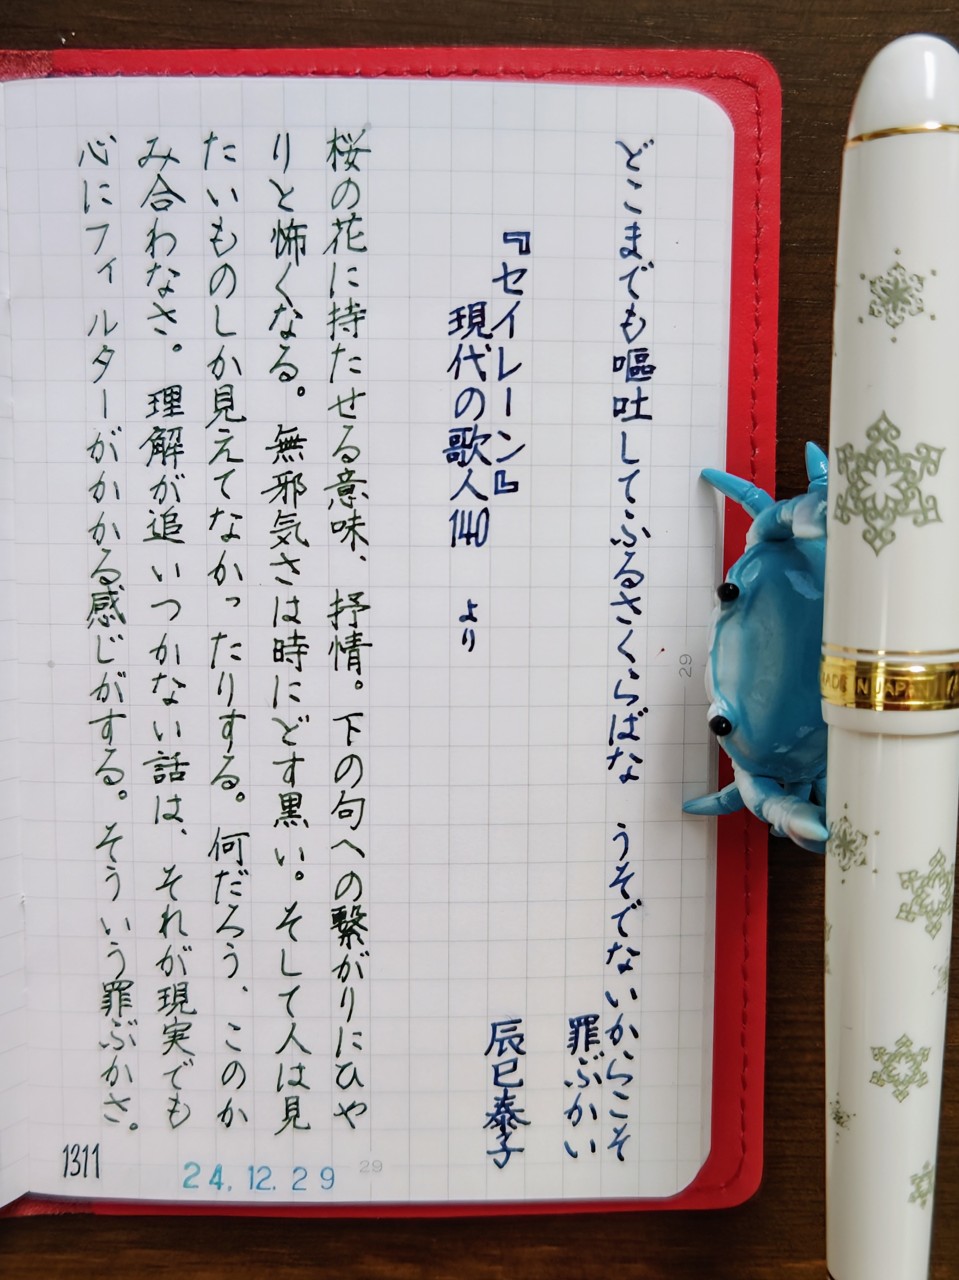 どこまでも嘔吐してふるさくらばな　うそでないからこそ
罪ぶかい
辰巳泰子
『セイレーン』
現代の歌人140　より
桜の花に持たせる意味、抒情。下の句への繋がりにひや
りと怖くなる。無邪気さは時にどす黒い。そして人は見
たいものしか見えてなかったりする。何だろう、このか
み合わなさ。理解が追いつかない話は、それが現実でも
心にフィルターがかかる感じがする。そういう罪ぶかさ。
1311
24.12.29
29
29
MADE IN JAPAN